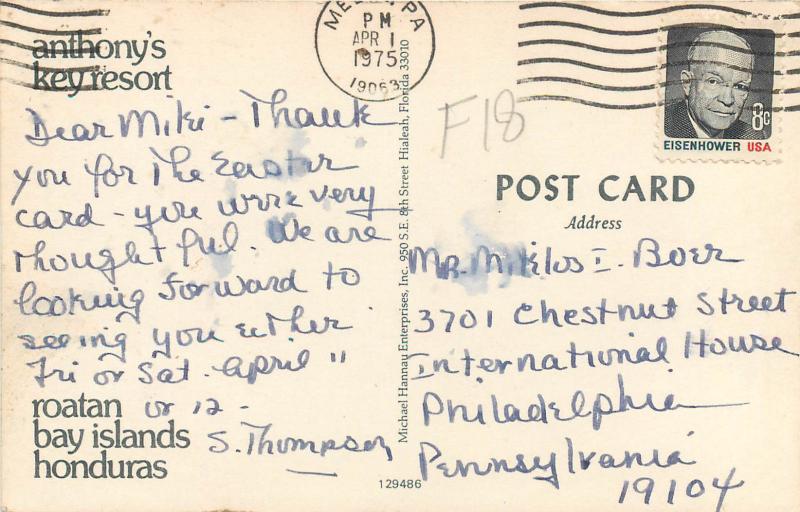 anthony's
key resort
Dear Miki - Thank
you for The Easter
card - you were very
thoughtful. We are
looking forward to
seeing you either
Fri or Sat. April 11
or 12 -
S. Thompson
roatan
bay islands
honduras
PM
APR 1
1975
19063
Michael Hannau Enterprises, Inc. 950 S.E. 8th Street Hialeah, Florida 33010
129486
F18
8c
EISENHOWER USA
POST CARD
Address
Mr. Miklos I. Boer
3701 Chestnut Street
International House
Philadelphia
Pennsylvania
19104